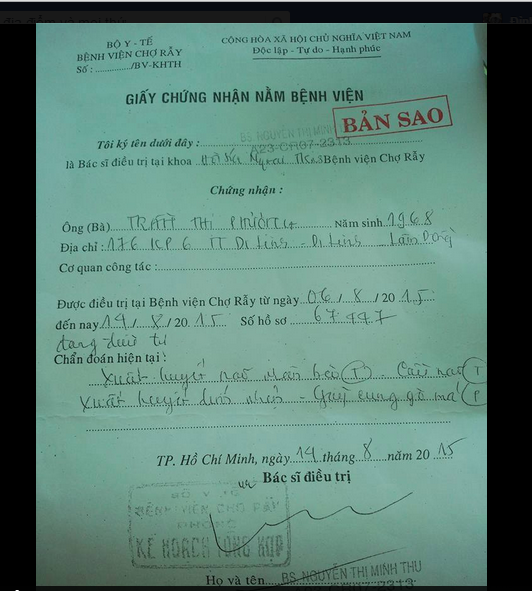 BỘ Y - TẾ
BỆNH VIỆN CHỢ RẪY
Số : ............/BV-KHTH
CỘNG HÒA XÃ HỘI CHỦ NGHĨA VIỆT NAM
Độc lập - Tự do - Hạnh phúc
GIẤY CHỨNG NHẬN NẰM BỆNH VIỆN
BẢN SAO
Tôi ký tên dưới đây :
BS NGUYỄN THỊ MINH
là Bác sĩ điều trị tại khoa Hồi Sức Ngoại Bệnh viện Chợ Rẫy
Chứng nhận :
Ông (Bà) TRẦN THỊ Năm sinh 1968
Địa chỉ : 176 KP 6 TT Di Linh - Di Linh - Lâm Đồng
Cơ quan công tác :
Được điều trị tại Bệnh viện Chợ Rẫy từ ngày 06 / 8 / 20 15
đến nay 14 / 8 / 20 15 Số hồ sơ 67447
đang điều trị
Chẩn đoán hiện tại :
Xuất huyết não bán cầu (T) - Cầu não T
Xuất huyết dưới nhện - Gãy cung gò má (P
TP. Hồ Chí Minh, ngày 14 tháng 8 năm 20 15
Bác sĩ điều trị
BỘ Y TẾ
BỆNH VIỆN CHỢ RẪY
PHÒNG
KẾ HOẠCH TỔNG HỢP
Họ và tên BS. NGUYỄN THỊ MINH THU